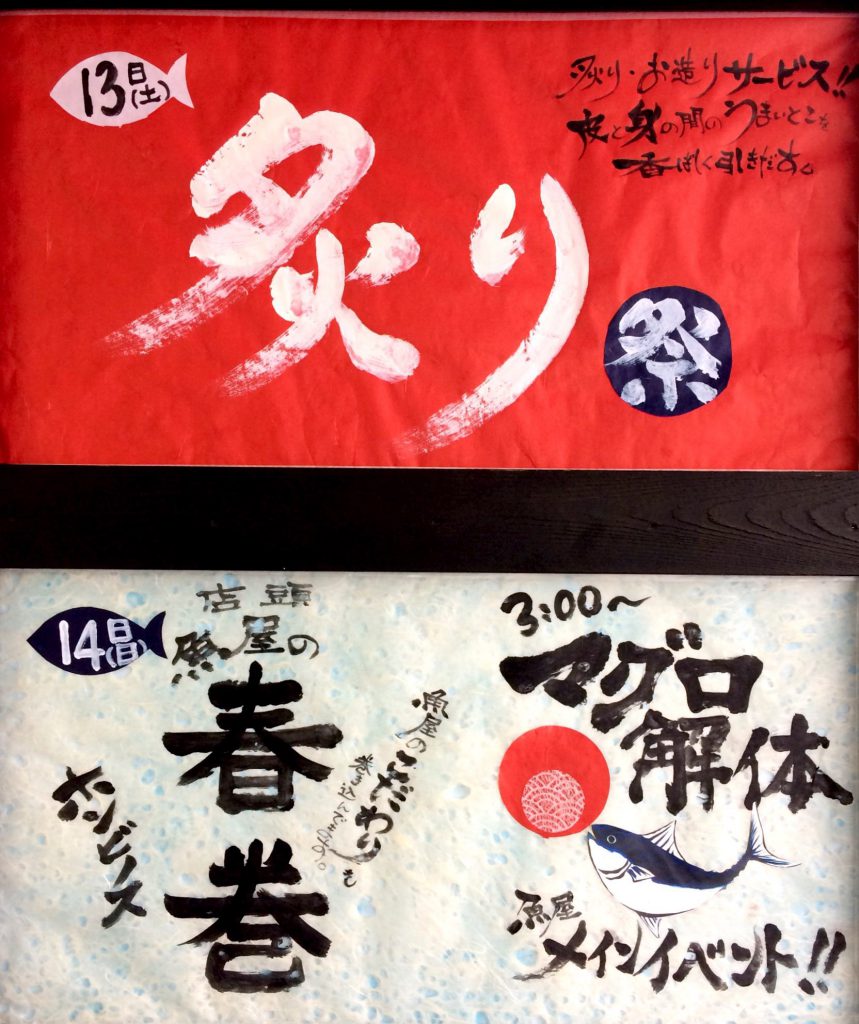 13日(土)
炙り
祭
炙り・お造りサービス!!
皮と身の間のうまいとこを
香ばしく引きだす。
14日(日)
店頭
魚屋の
春巻
ホンビノス
魚屋のこだわりを
巻き込んでます。
3:00〜
マグロ
解体
魚屋
メインイベント!!